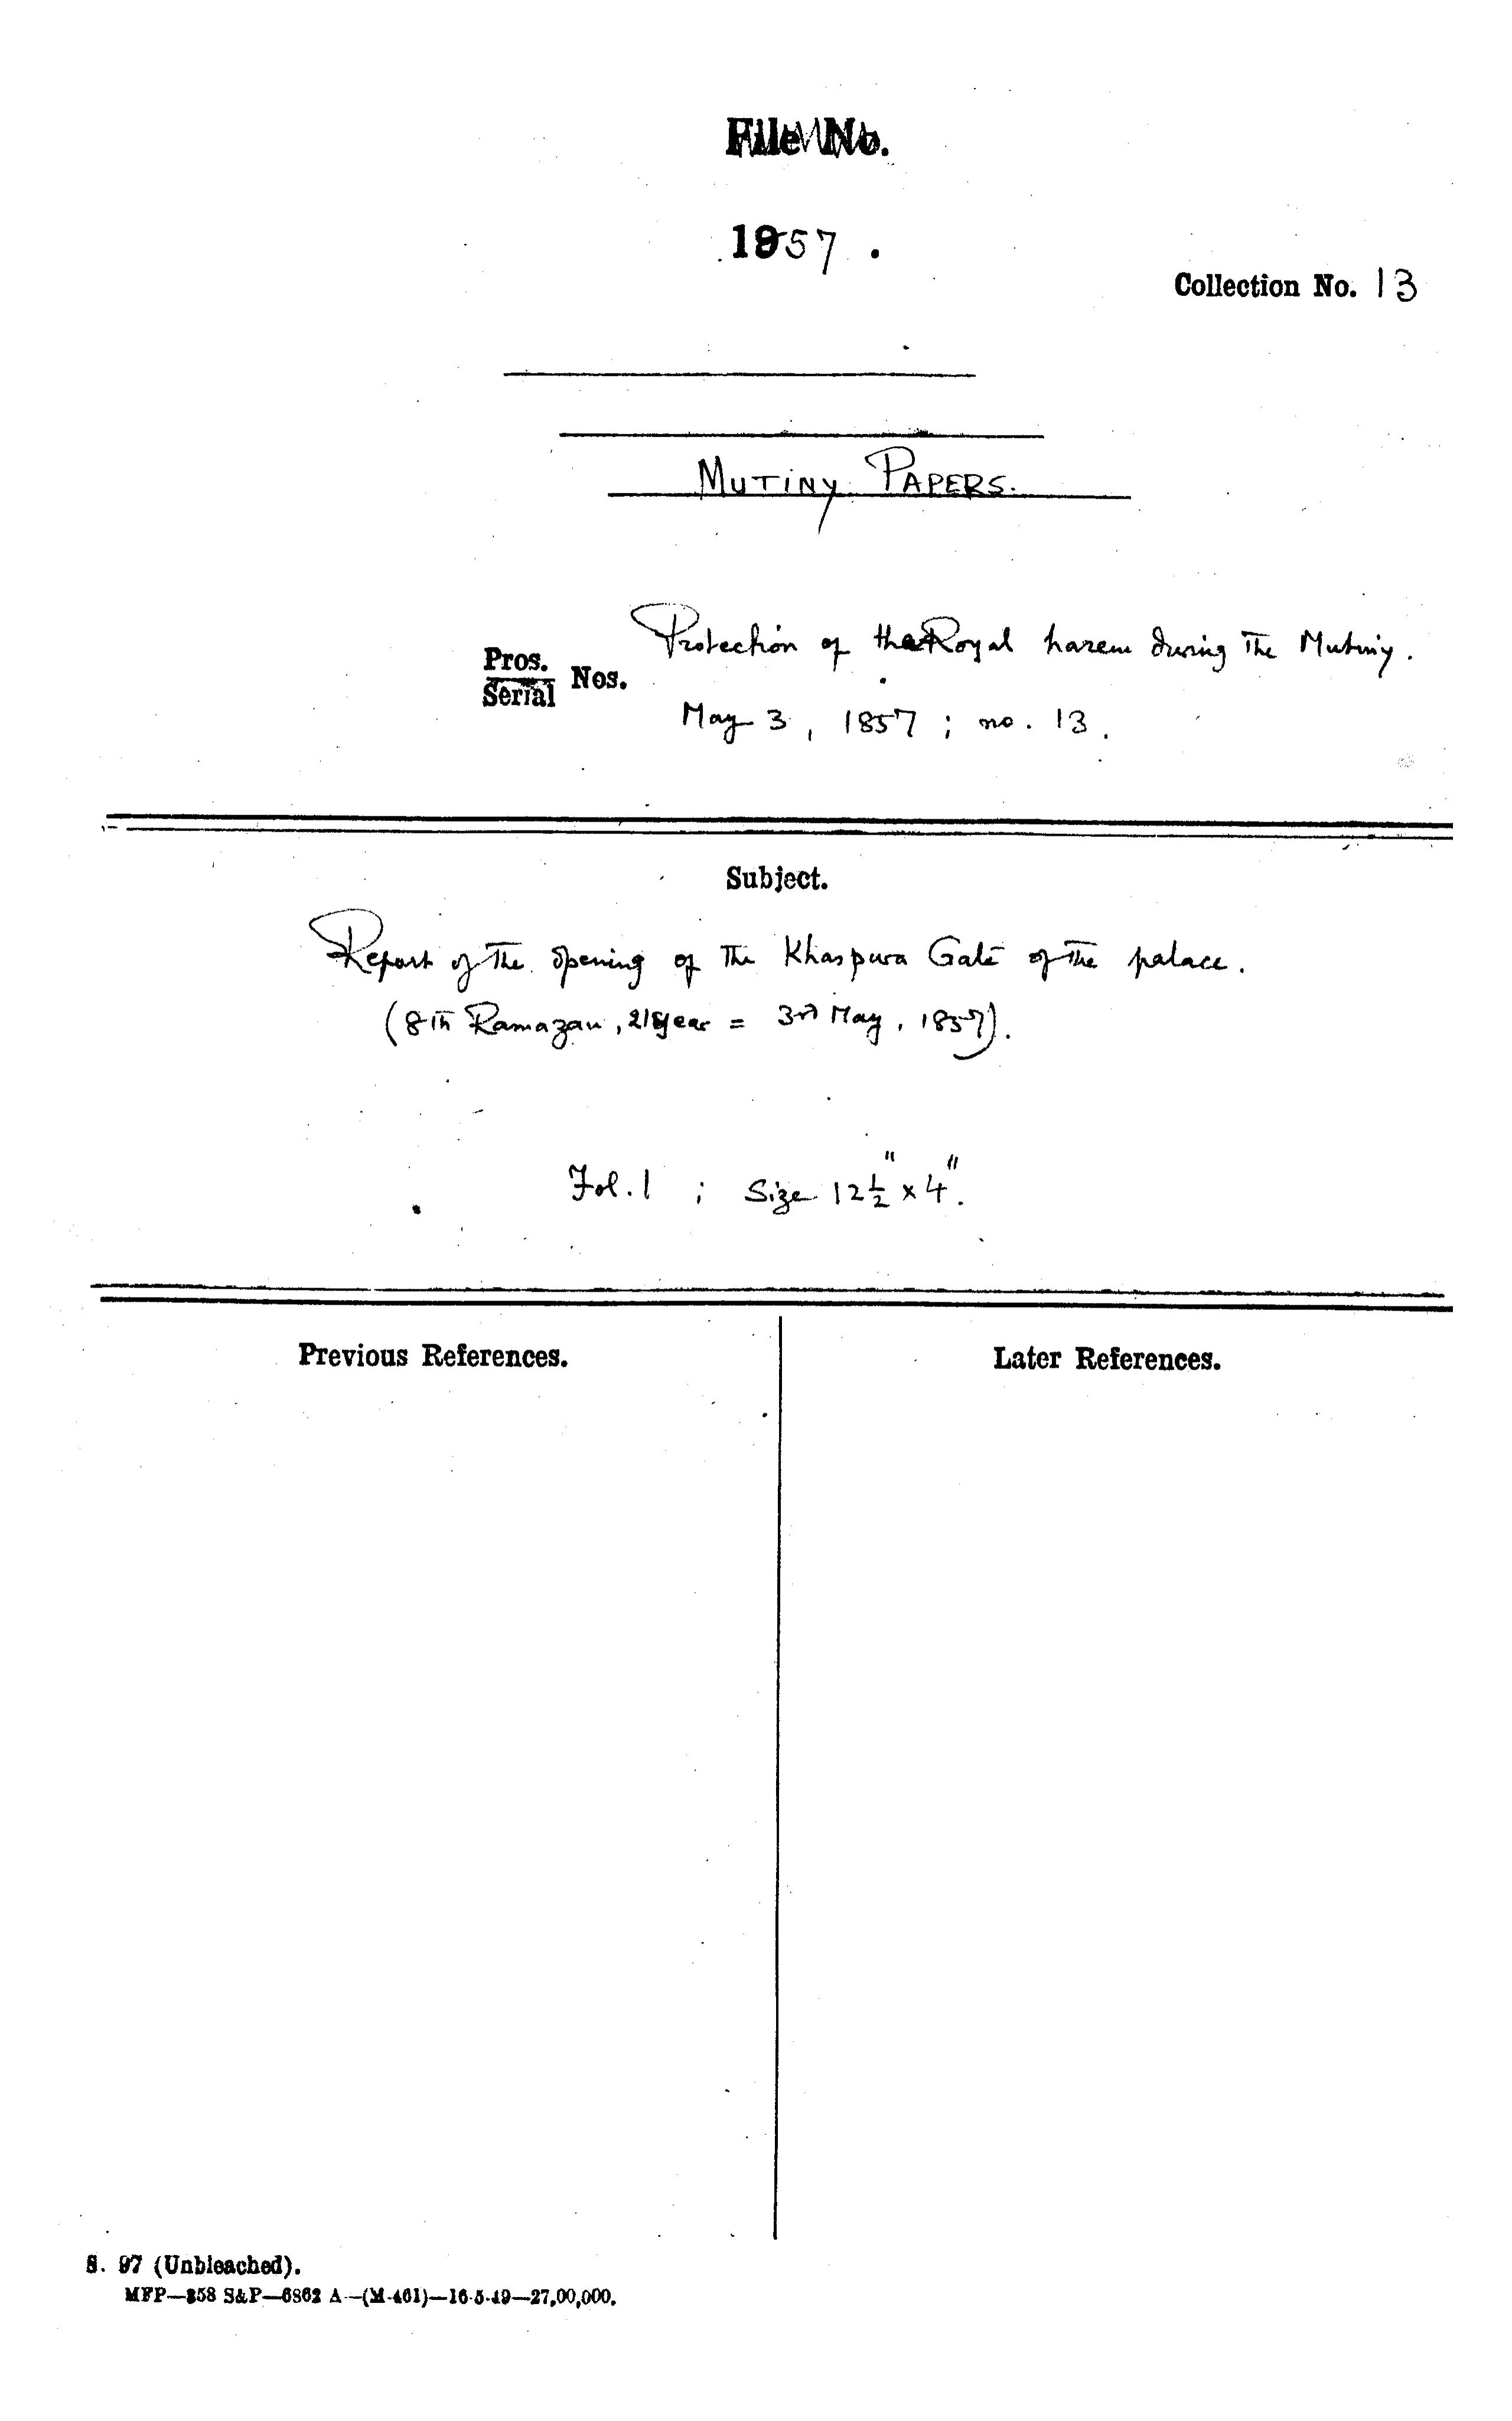 File No.
1857.
Collection No. 13
MUTINY PAPERS.
Protection of the Royal harem during the Mutiny.
Pros.
Serial Nos.
May 3, 1857; no. 13.
Subject.
Report of the opening of the Khaspura Gate of the palace.
(8th Ramazan, 21 year = 3rd May, 1857).
Fol. 1 ; Size 12½" x 4".
Previous References.
Later References.
S. 97 (Unbleached).
MFP—358 S&P—6862 A—(M-461)—16-5-49—27,00,000.